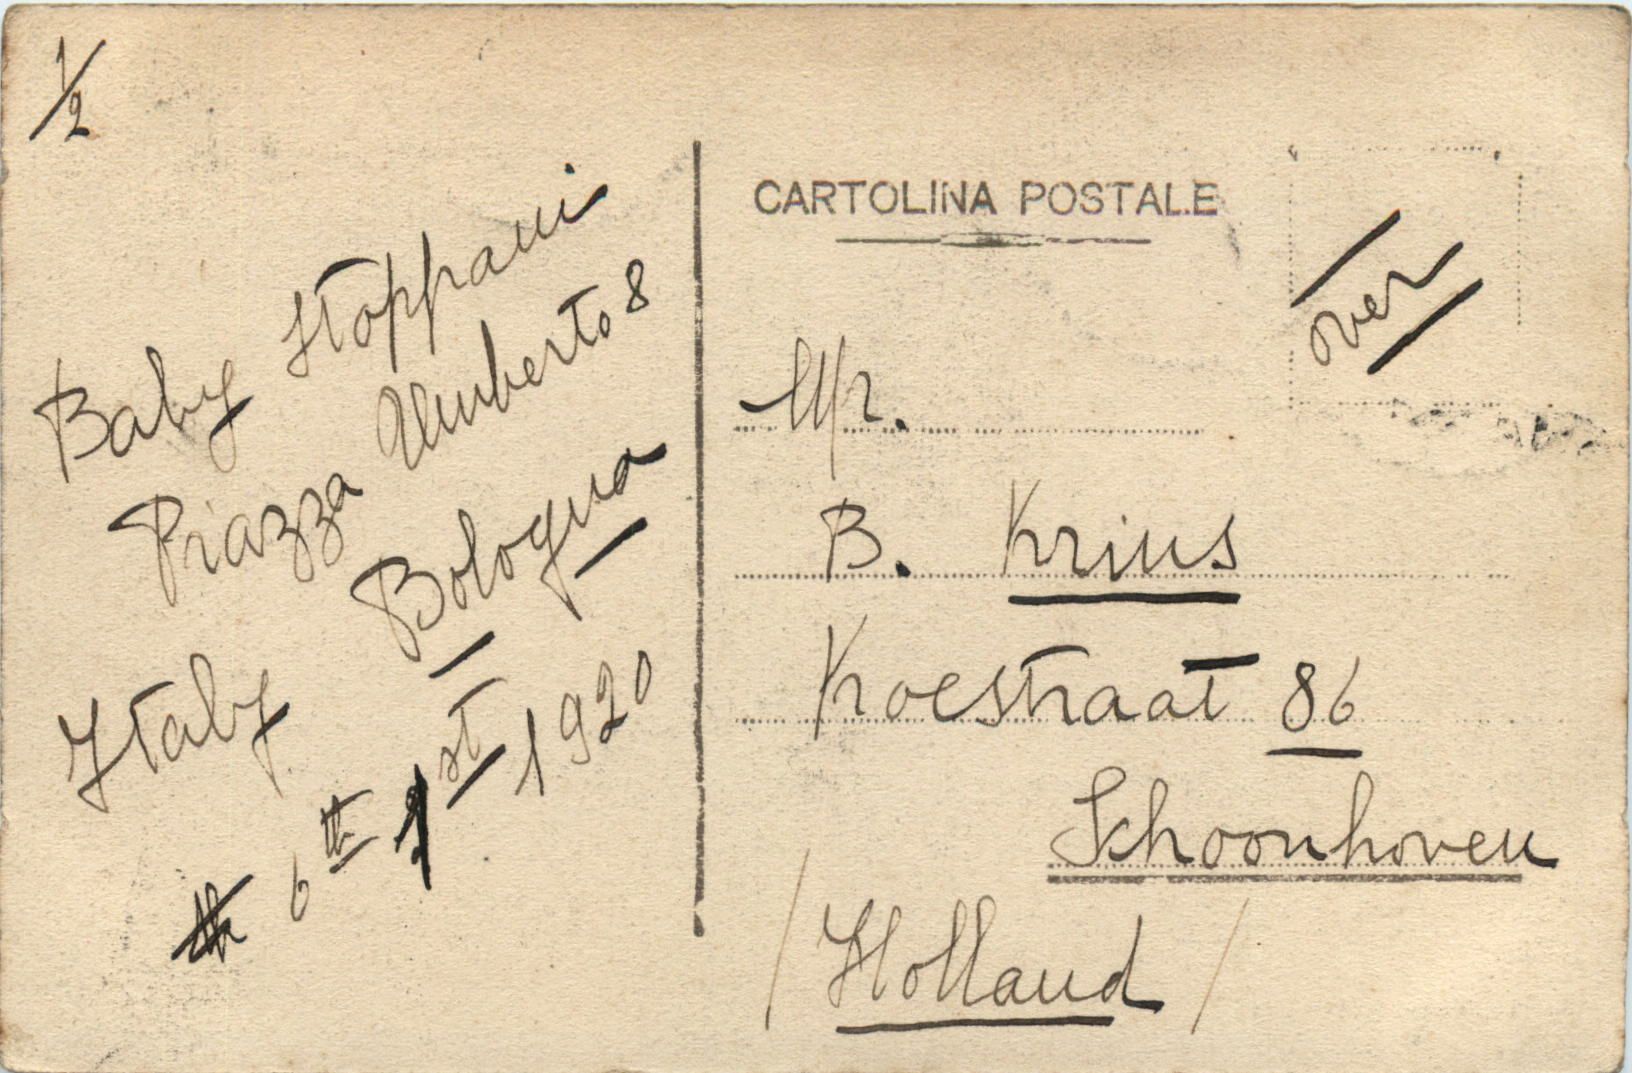 1/2
Baby Stoppani
Piazza Umberto 8
Bologna
Italy
6th 1st 1920
CARTOLINA POSTALE
over
Mr.
B. Krius
Koestraat 86
Schoonhoven
Holland